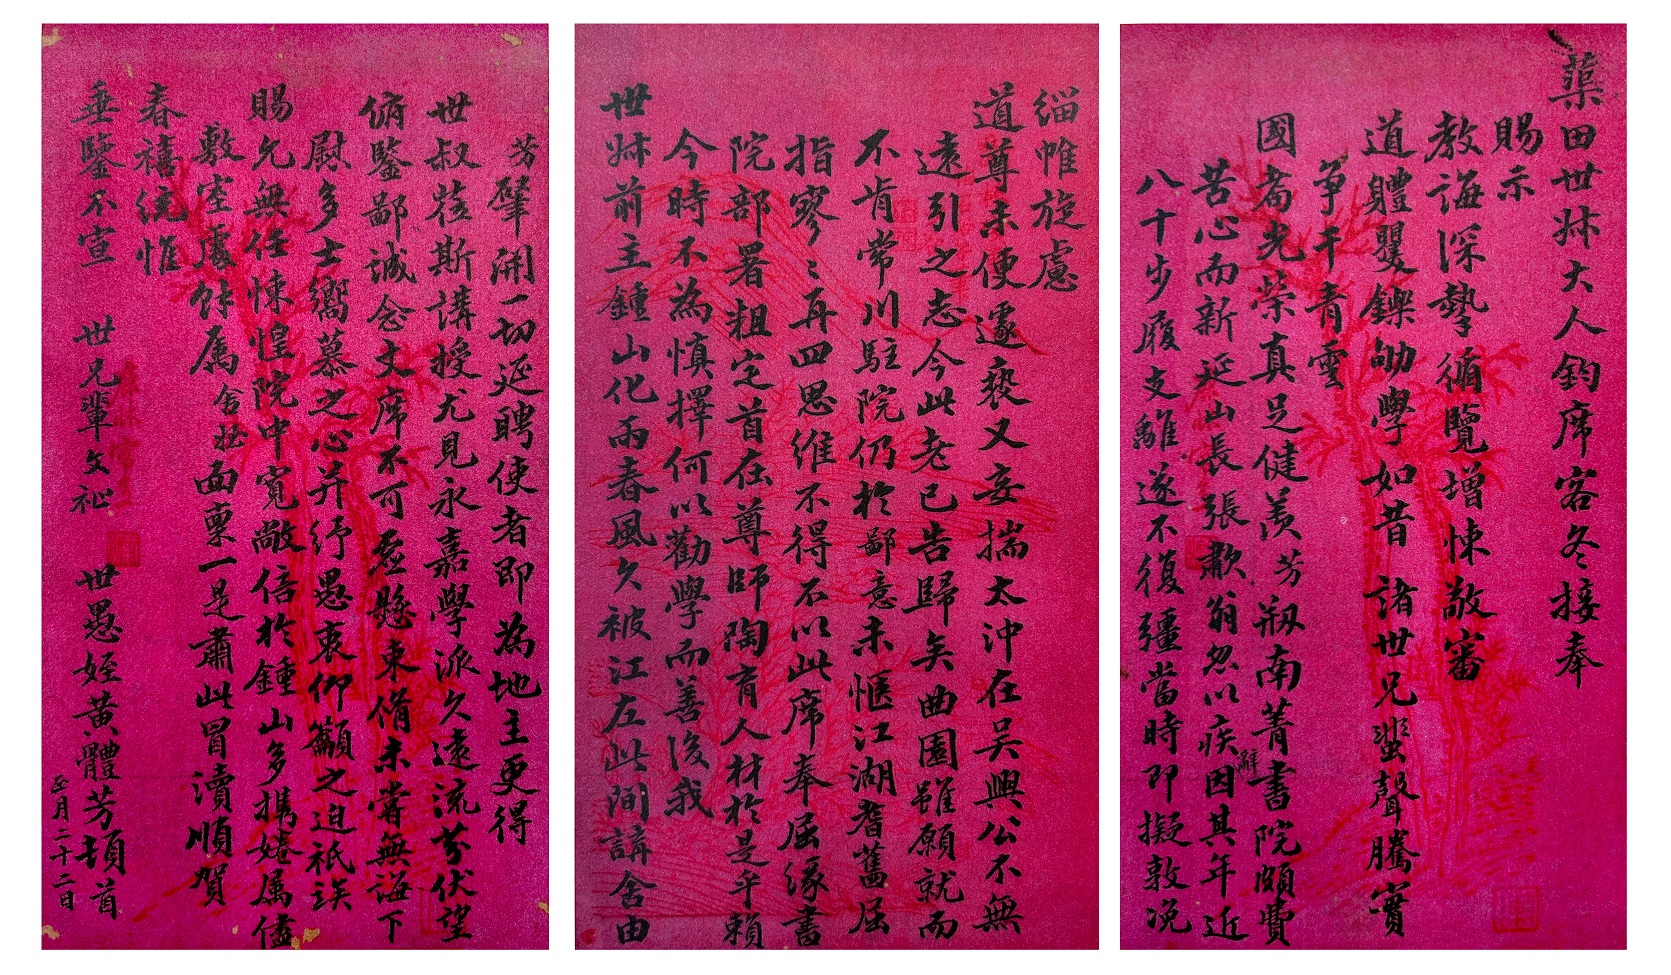 蕖田世叔大人鈞席客冬接奉
賜示
教誨深摯循覽增悚敬審
道體矍鑠劬學如昔諸世兄蜚聲騰實
爭干青雲
國耇光榮真足健羨芳剏南菁書院頗費
苦心而新延山長張歗翁忽以疾辭因其年近
八十步履支離遂不復彊當時即擬敦浼
緇帷旋慮
道尊未便遽褻又妄揣太沖在吳興公不無
遠引之志今此老已告歸矣曲園雖願就而
不肯常川駐院仍於鄙意未愜江湖耆舊屈
指寥寥再四思維不得不以此席奉屈緣書
院部署粗定首在尊師陶育人材於是乎賴
今時不為慎擇何以勸學而善後我
世叔前主鍾山化雨春風久被江左此間講舍由
芳肇開一切延聘使者即為地主更得
世叔蒞斯講授尤見永嘉學派久遠流芬伏望
俯鑒鄙誠念文席不可虛懸東脩未嘗無誨下
慰多士嚮慕之心并紓愚衷仰籲之迫祇竢
賜允無任悚惶院中寬敞倍於鍾山多攜婘属儘
敷室處餘属舍姪面稟一是肅此冒瀆順賀
春禧統惟
垂鑒不宣 世兄輩文祉 世愚姪黃體芳頓首
正月二十二日